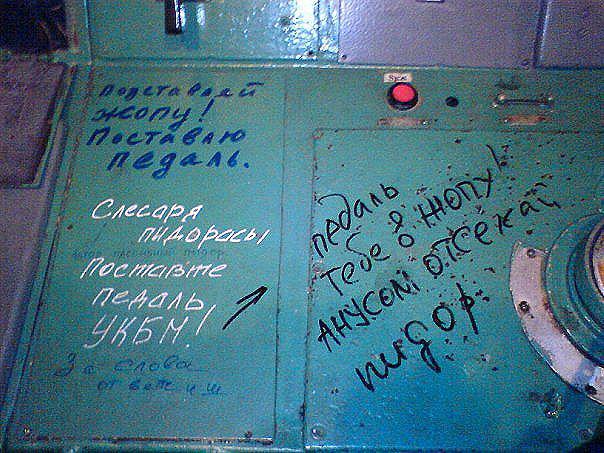 Подставляй
жопу!
Поставлю
педаль.
Слесаря
пидорасы
Поставте
педаль,
УКБМ!
За слова
ответиш
педаль
тебе в жопу!
Анусом отсекай
пидор.